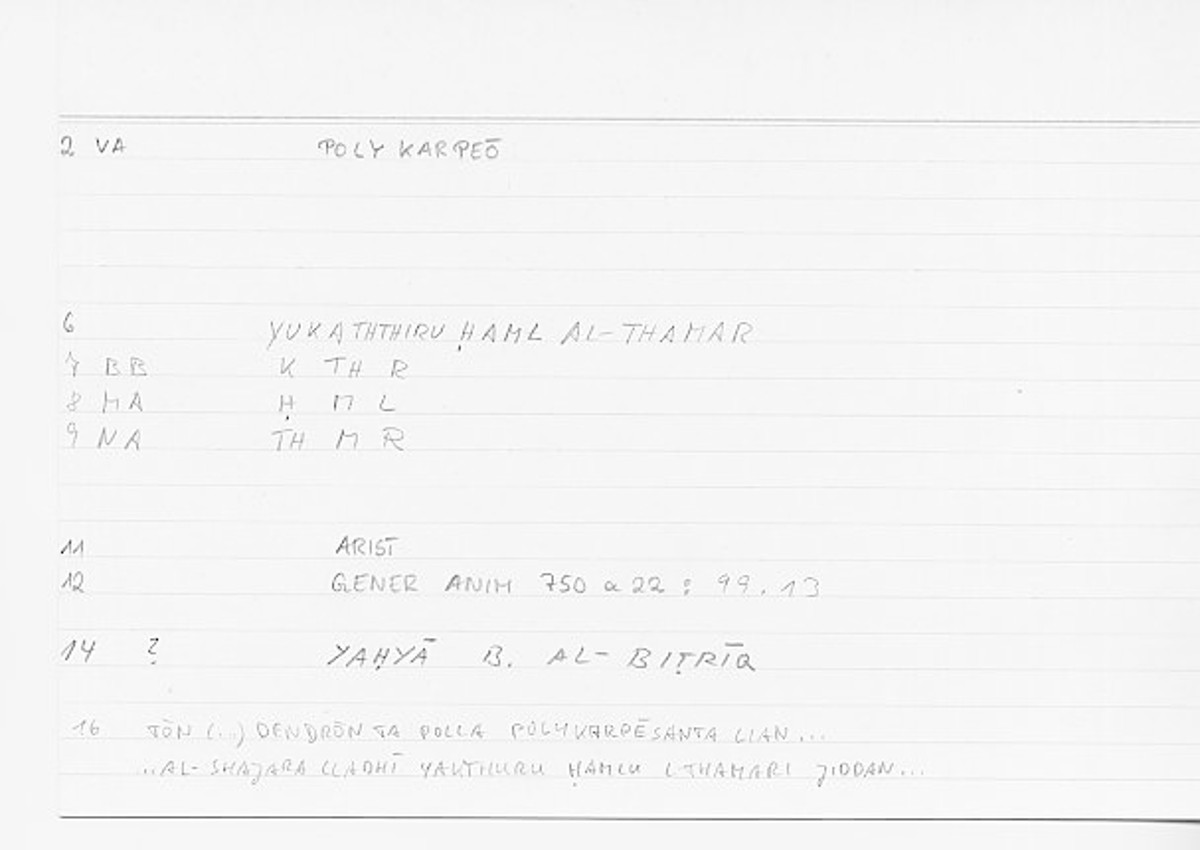 2 VA POLY KARPEŌ
6 YUKATHTHIRU ḤAML AL-THAMAR
7 BB K TH R
8 MA Ḥ M L
9 NA TH M R
11 ARIST
12 GENER ANIM 750 a 22 : 99.13
14 ? YAḤYĀ B. AL-BIṬRĪQ
16 TŌN (..) DENDRŌN TA POLLA POLYKARPĒSANTA LIAN ...
..AL-SHAJARA LLADHĪ YAKTHURU ḤAMLU LTHAMARI JIDDAN...